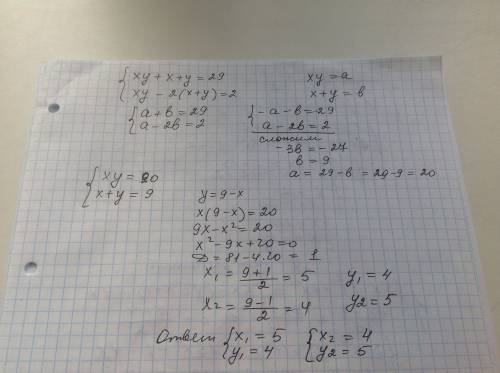 { xy + x + y = 29    xy = a
{ xy - 2(x+y) = 2    x+y = в
{ a + в = 29    { -a - в = -29
{ a - 2в = 2    { a - 2в = 2
сложим
-3в = -27
в = 9
a = 29 - в = 29 - 9 = 20
{ xy = 20
{ x + y = 9    y = 9 - x
x(9-x) = 20
9x - x² = 20
x² - 9x + 20 = 0
D = 81 - 4·20 = 1
x₁ = (9+1)/2 = 5    y₁ = 4
x₂ = (9-1)/2 = 4    y2 = 5
Ответ { x₁ = 5    { x₂ = 4
{ y₁ = 4    { y2 = 5